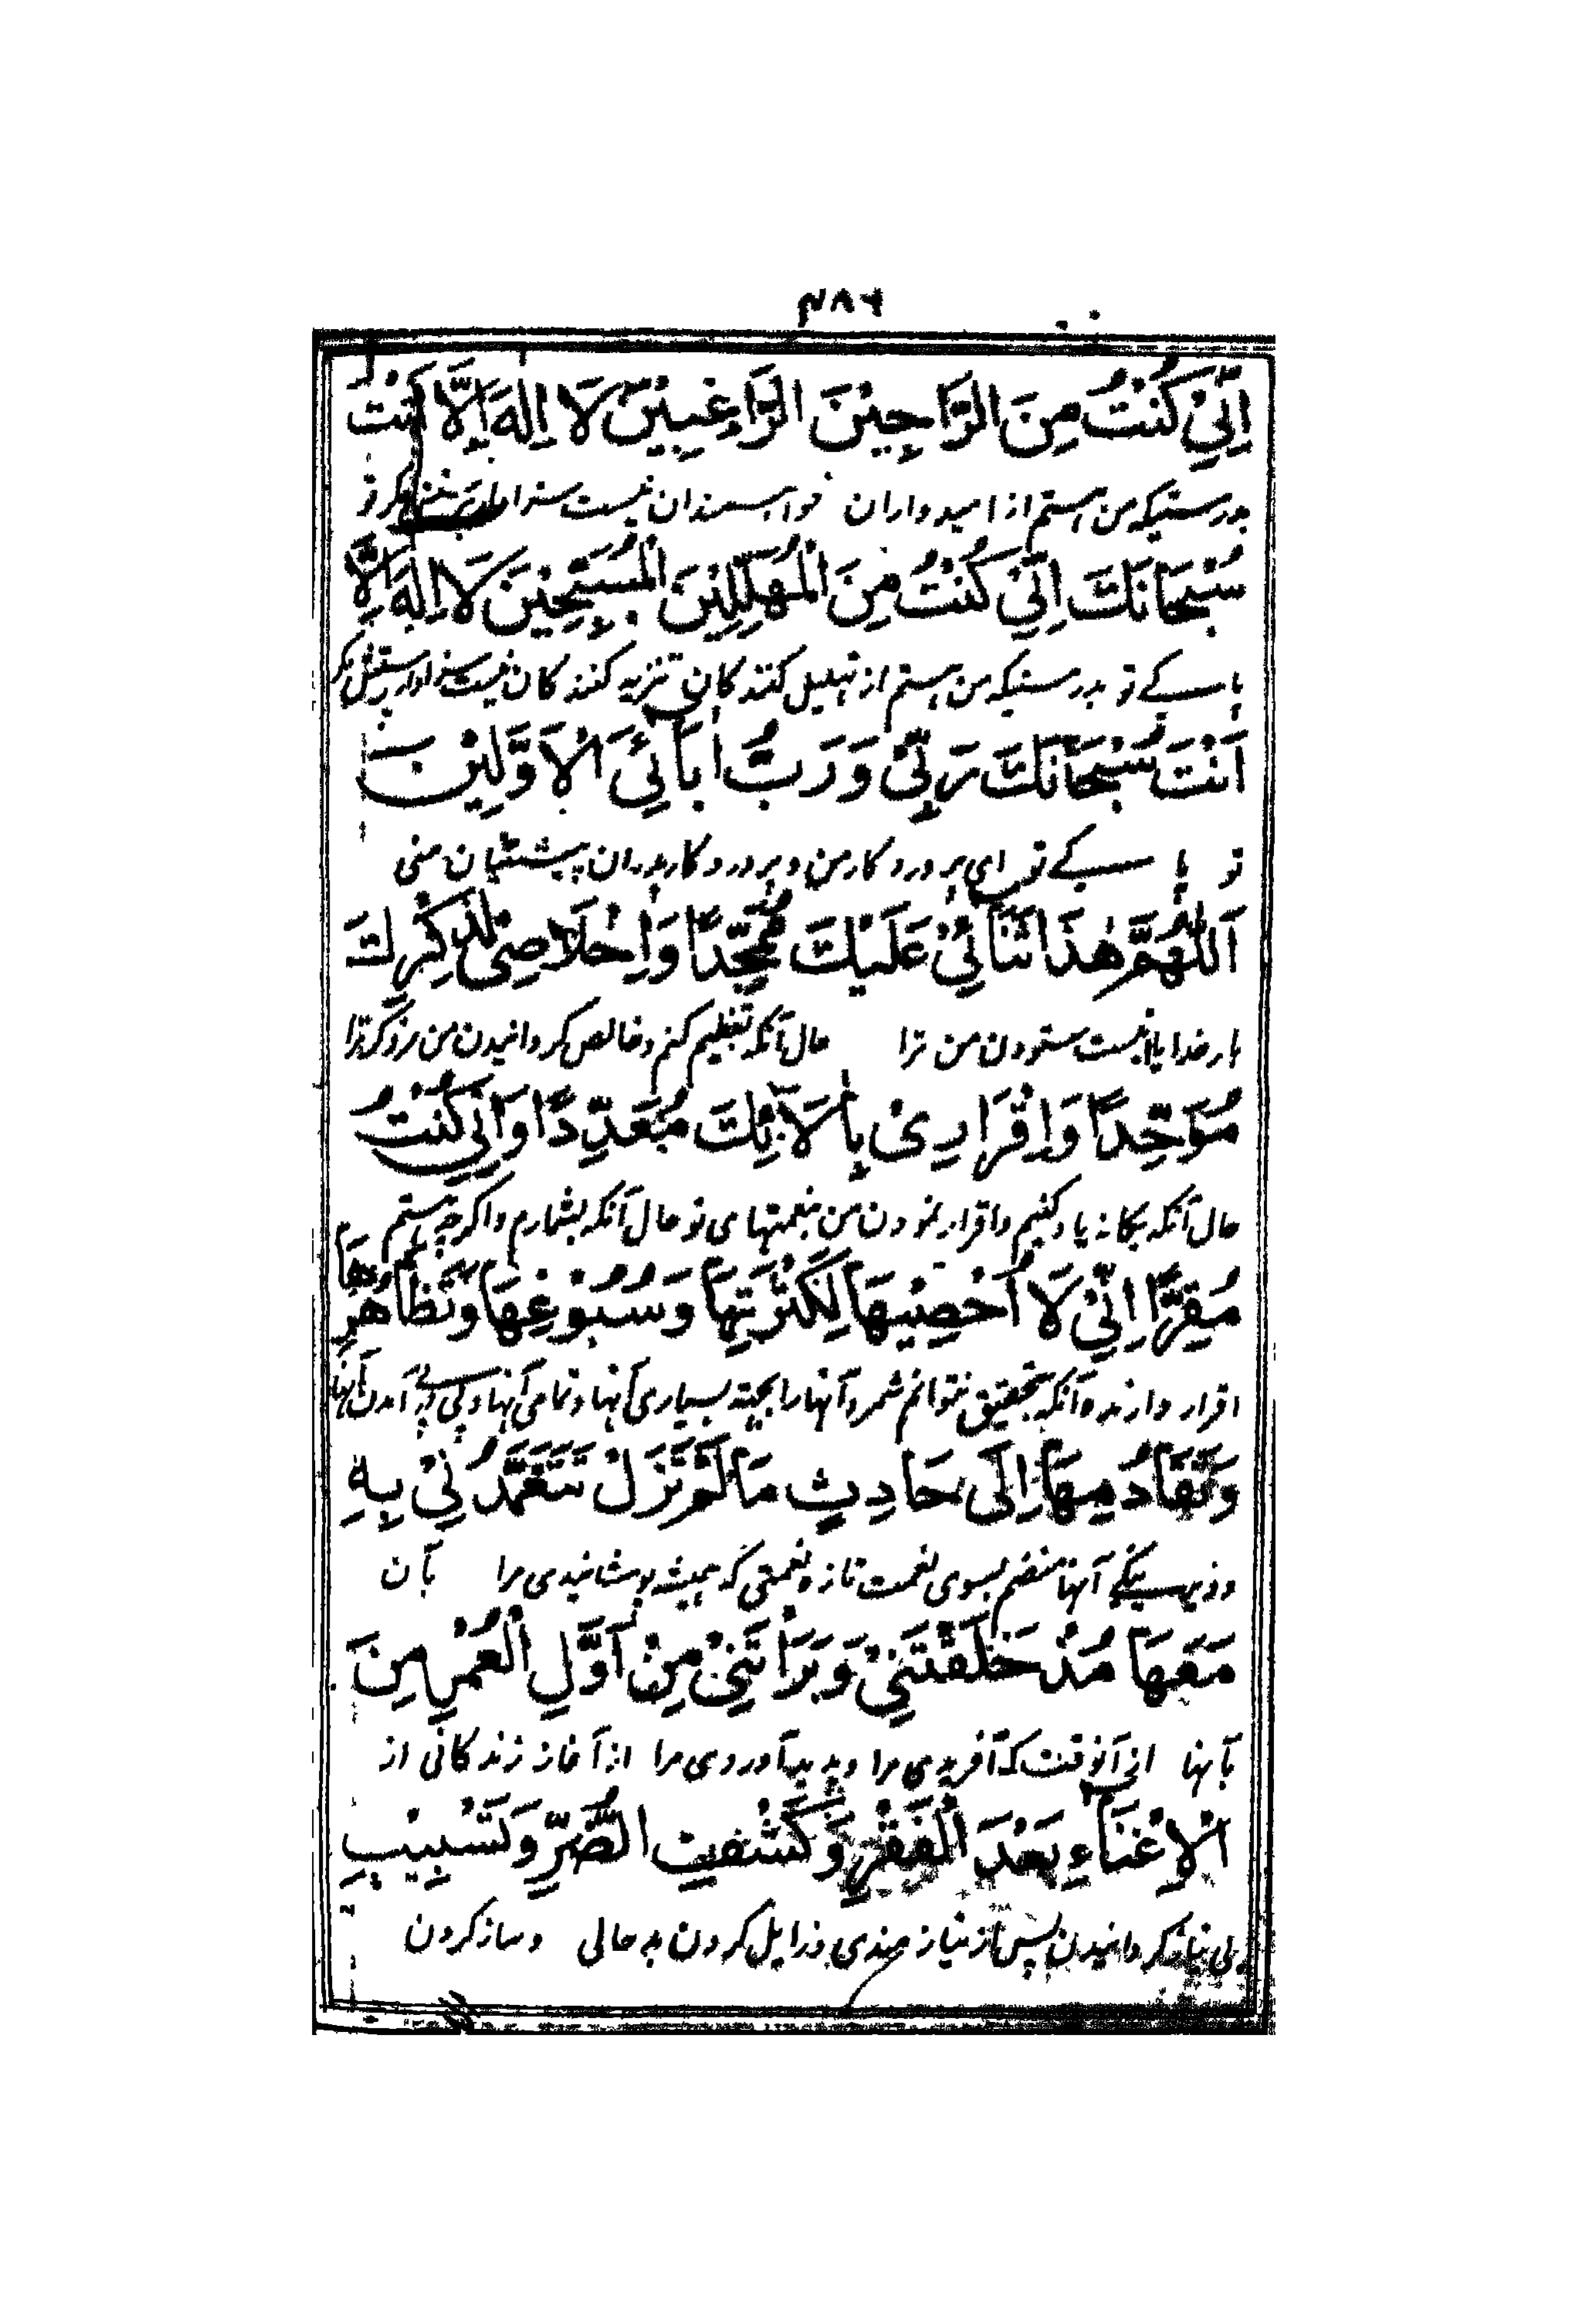 ۴۸۶
اِنِّيْ كُنْتُ مِنَ الرَّاجِيْنَ الرَّاغِبِيْنَ لَا اِلٰهَ اِلَّا اَنْتَ
بدرستیکه من هستم از امیدواران خواهشمندان نیست سزاوار پرستش مگر تو
سُبْحَانَكَ اِنِّيْ كُنْتُ مِنَ الْمُهَلِّلِيْنَ الْمُسَبِّحِيْنَ لَا اِلٰهَ اِلَّا
پاکے تو بدرستیکه من هستم از تهلیل کنندکان تنزیه کنندکان نیست سزاوار پرستش مکر
اَنْتَ سُبْحَانَكَ رَبِّيْ وَ رَبُّ اٰبَائِيَ الْاَوَّلِيْنَ
تو پاکے تو ای پروردکار من و پروردکار پدران پیشینیان منی
اَللّٰهُمَّ هٰذَا ثَنَائِيْ عَلَيْكَ مُمَجِّدًا وَاِخْلَاصِيْ لِذِكْرِكَ
بار خدایا اینست ستودن من ترا حال آنکه تعظیم کنم و خالص کردانیدن من مر ذکر ترا
مُوَحِّدًا وَاِقْرَارِيْ بِاٰلَائِكَ مُعَدِّدًا وَاِنِّيْ كُنْتُ
حال آنکه یکانه یاد کنم و اقرار نمودن من بنعمتهای تو حال آنکه بشمارم و اکرچه هستم
مُقِرًّا اِنِّيْ لَا اُحْصِيْهَا لِكَثْرَتِهَا وَسُبُوْغِهَا وَتَظَاهُرِهَا
اقرار دارنده آنکه بتحقیق نتوانم شمرد آنها را بجهة بسیاری آنها و تمامی آنها و پی در پی آمدن آنها
وَتَقَادُمِهَا اِلٰى حَادِثٍ مَا لَمْ تَزَلْ تَتَغَمَّدُنِيْ بِهِ
آنها منضم بسوی نعمت تازه نعمتی که همیشه پوشانیدی مرا بآن
مَعَهَا مُذْ خَلَقْتَنِيْ وَبَرَاْتَنِيْ مِنْ اَوَّلِ الْعُمْرِ مِنَ
بآنها از آنوقت که آفریدی مرا و پدید آوردی مرا از آغاز زندکانی از
الْاِغْنَاءِ بَعْدَ الْفَقْرِ وَكَشْفِ الضُّرِّ وَتَسْبِيْبِ
بی نیاز کردانیدن پس از نیازمندی و زایل کردن بدحالی و ساز کردن